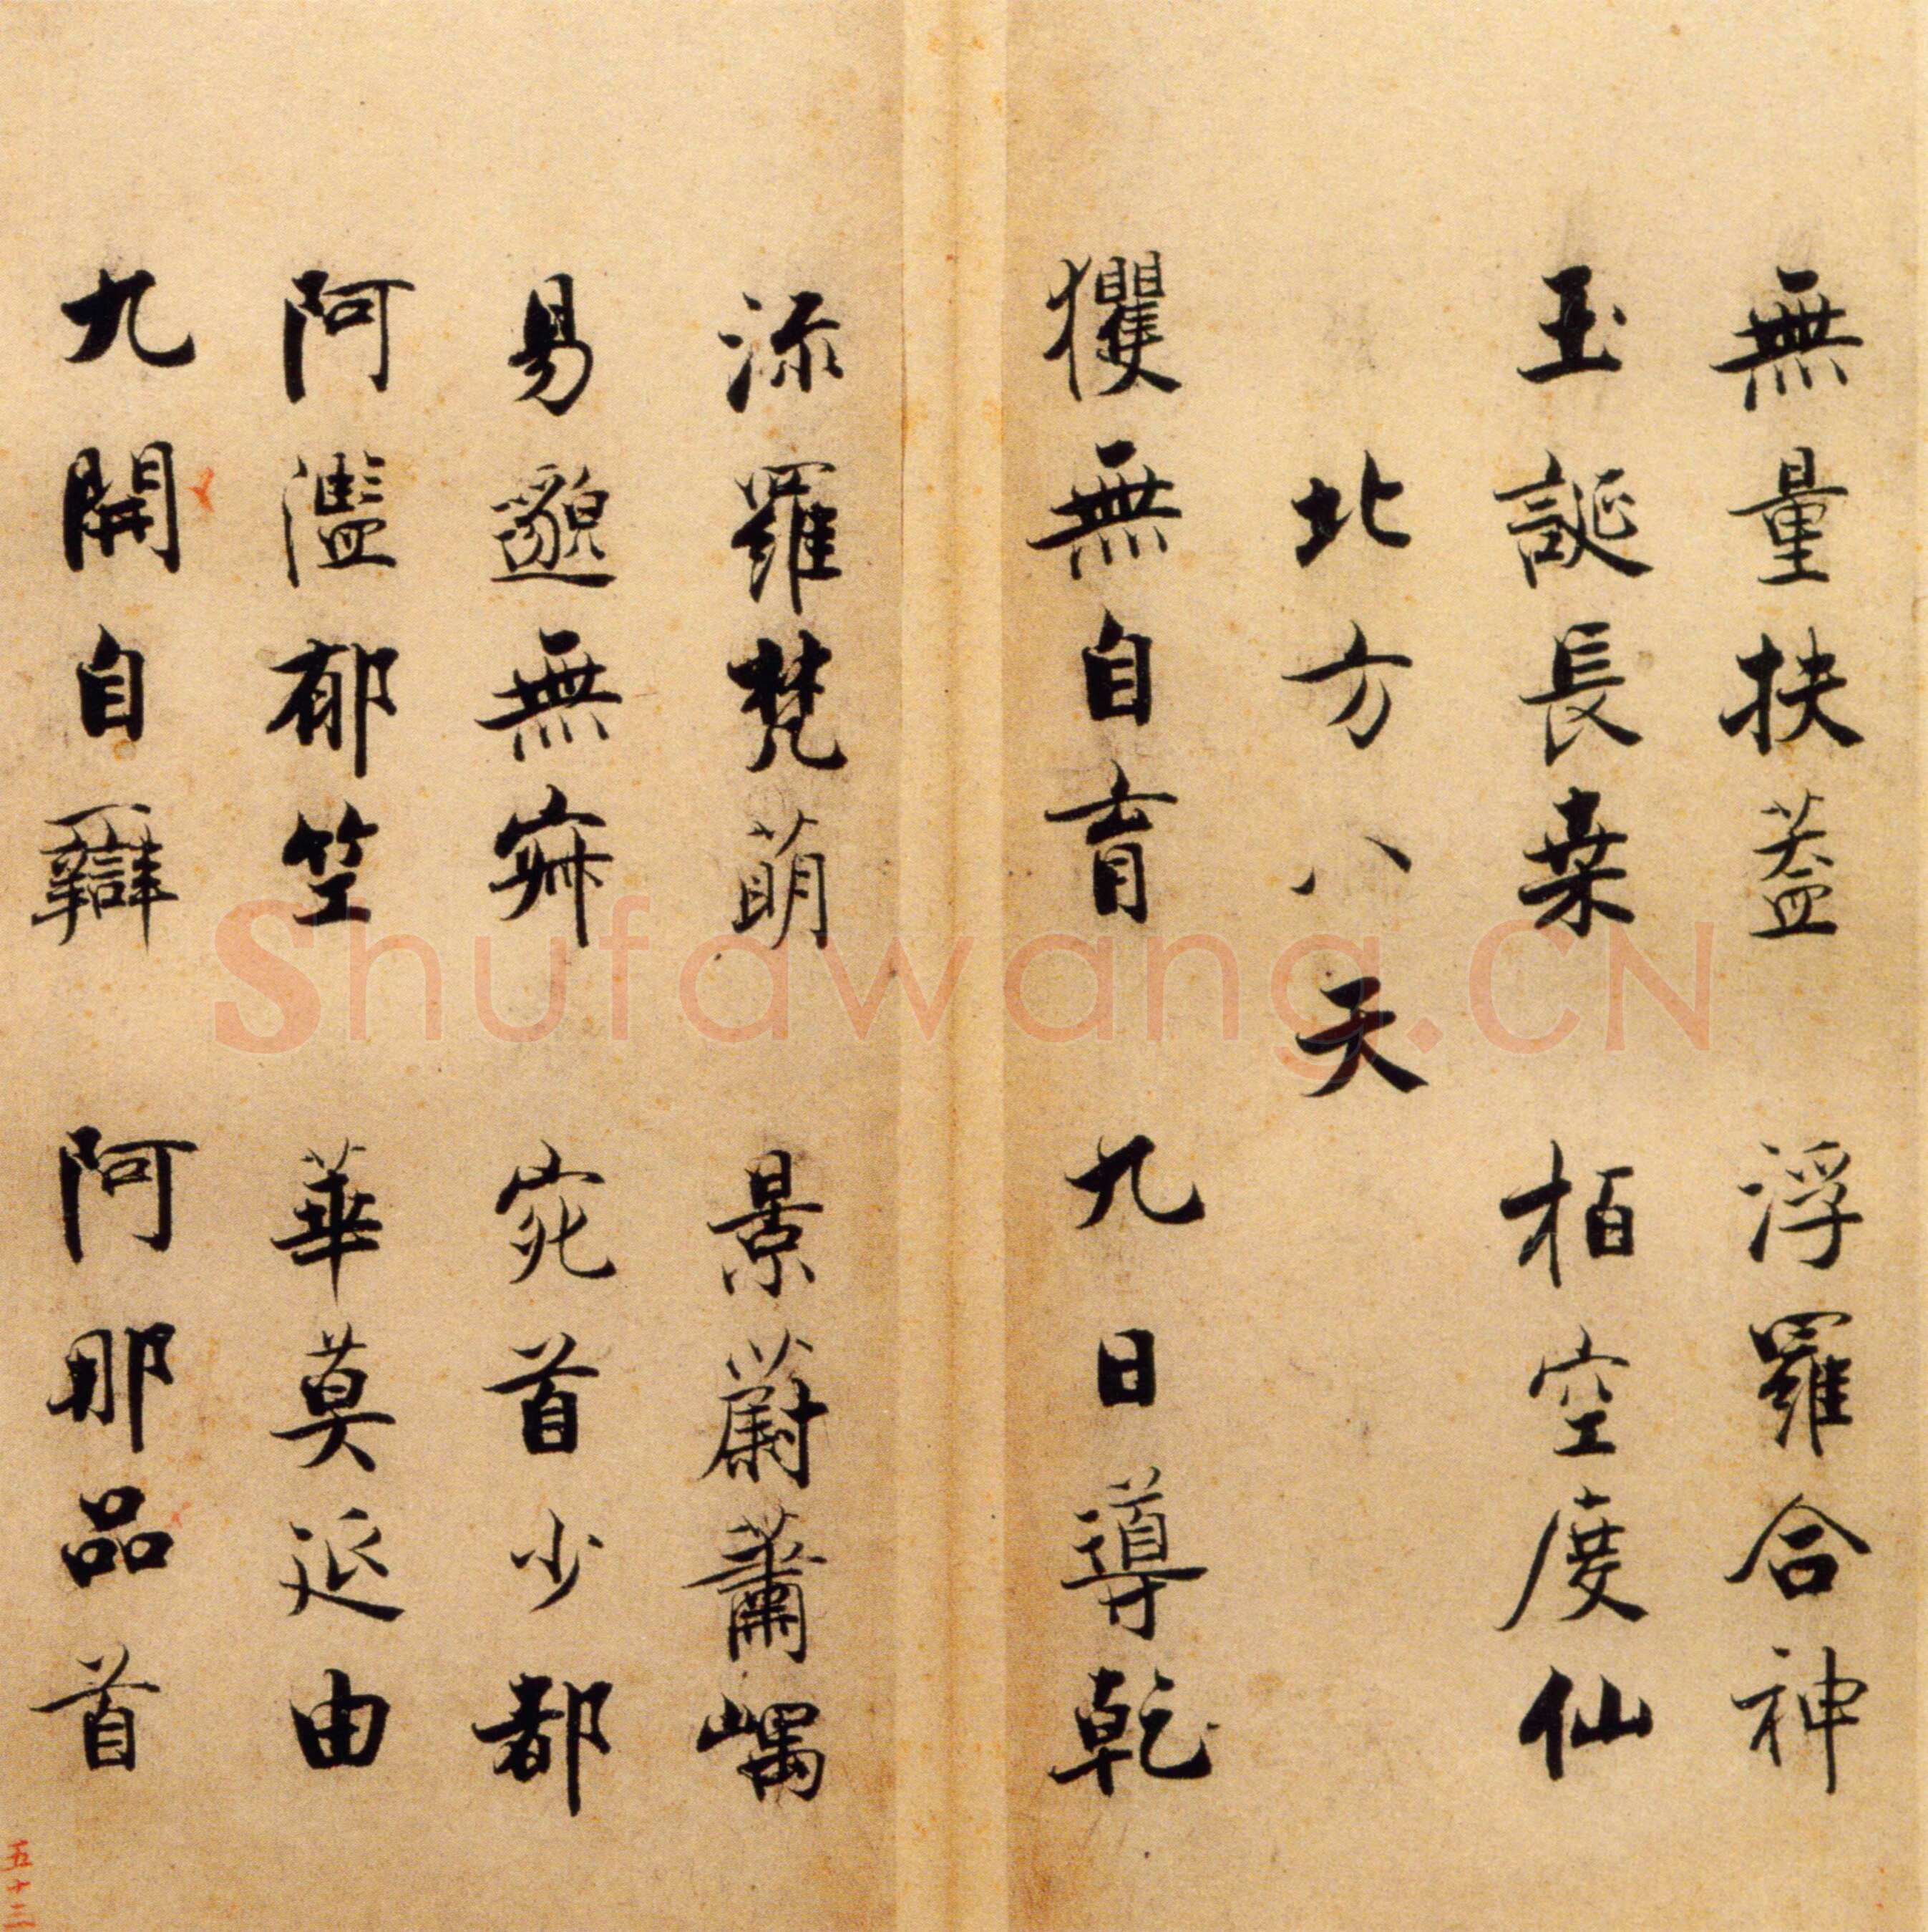 無量扶蓋 浮羅合神
玉誕長桒 栢空度仙
北方八天
玃無自育 九日導乾
流羅梵萌 景蔚蕭嵎
易邈無寂 宛首少都
阿濫郁竺 華莫延由
九開自辯 阿那品首
五十三
Shufawang.CN